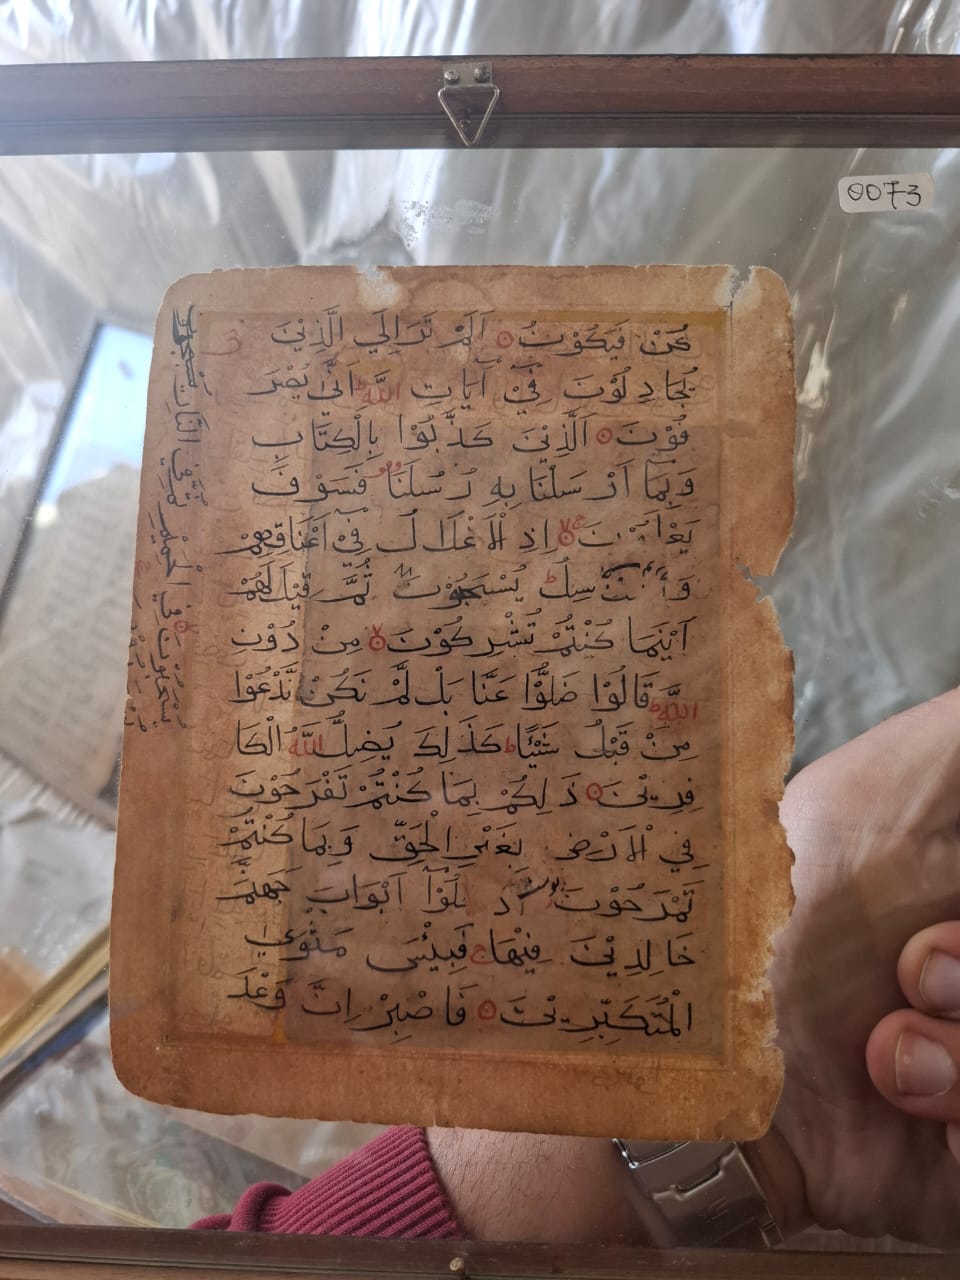 0073
كُنْ فَيَكُوْنُ ۝ اَلَمْ تَرَ اِلَي الَّذِيْنَ
يُجَادِلُوْنَ فِيْٓ اٰيَاتِ اللّٰهِ ط اَنّٰي يُصْرَ
فُوْنَ ۝ اَلَّذِيْنَ كَذَّبُوْا بِالْكِتَابِ
وَبِمَآ اَرْسَلْنَا بِهِ رُسُلَنَا فَسَوْفَ
يَعْلَمُوْنَ ۝ اِذِ الْاَغْلَالُ فِيْٓ اَعْنَاقِهِمْ
وَالسَّلَاسِلُ ط يُسْحَبُوْنَ ثُمَّ قِيْلَ لَهُمْ
اَيْنَمَا كُنْتُمْ تُشْرِكُوْنَ ۝ مِنْ دُوْنِ
اللّٰهِ ط قَالُوْا ضَلُّوْا عَنَّا بَلْ لَّمْ نَكُنْ نَّدْعُوْا
مِنْ قَبْلُ شَيْئًا ط كَذَلِكَ يُضِلُّ اللّٰهُ الْكَا
فِرِيْنَ ۝ ذَلِكُمْ بِمَا كُنْتُمْ تَفْرَحُوْنَ
فِي الْاَرْضِ بِغَيْرِ الْحَقِّ وَبِمَا كُنْتُمْ
تَمْرَحُوْنَ ۝ اُدْخُلُوْٓا اَبْوَابَ جَهَنَّمَ
خَالِدِيْنَ فِيْهَا ج فَبِيْئْسَ مَثْوَي
الْمُتَكَبِّرِيْنَ ۝ فَاصْبِرْ اِنَّ وَعْدَ
فِي الْحَمِيْمِ ثُمَّ فِي النَّارِ يُسْجَرُ